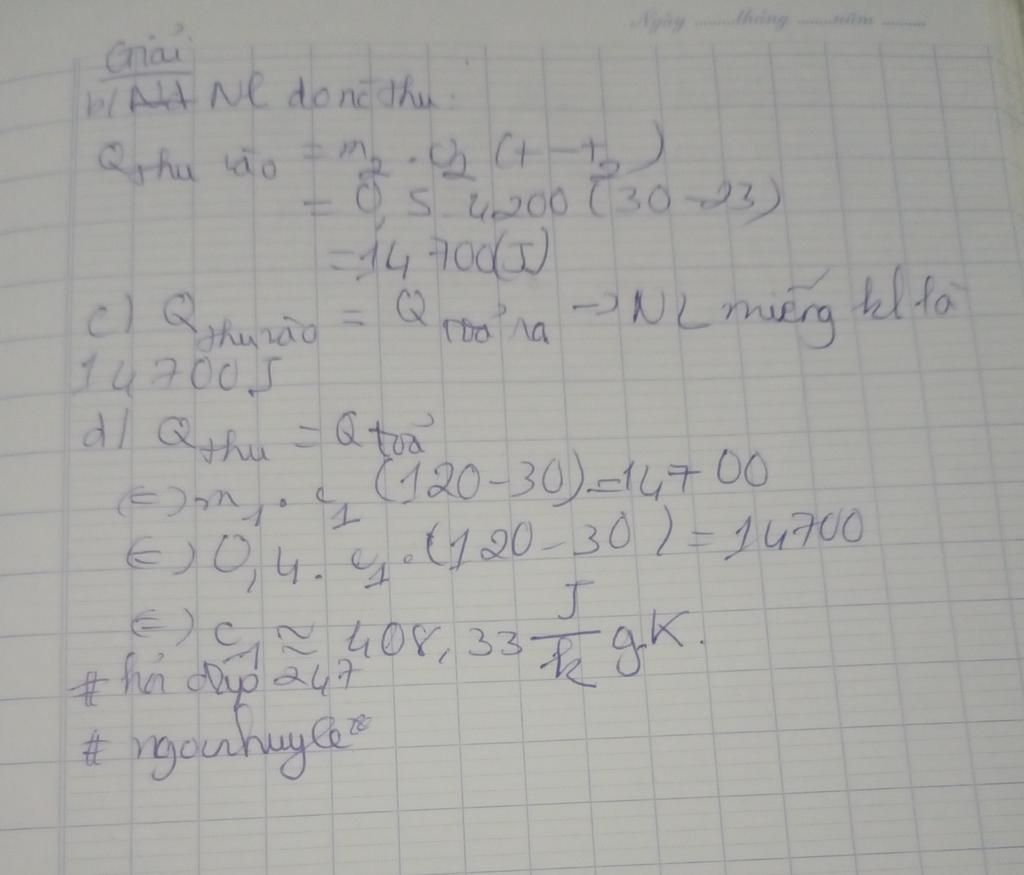 Ngày ........tháng ........năm ........
Giải
b) NL do nc thu.
Qthu vào = m2 . c2 (t - t2)
= 0,5 4200 (30 - 23)
= 14 700(J)
c) Qthu vào = Qtoả ra -> NL miếng kl là
14 700J
d) Qthu = Qtoả
(=) m1 . c1 (120 - 30) = 14700
(=) 0,4 . c1 . (120 - 30) = 14700
(=) c1 ≈ 408,33 J/kgK.
# hỏi đáp 247